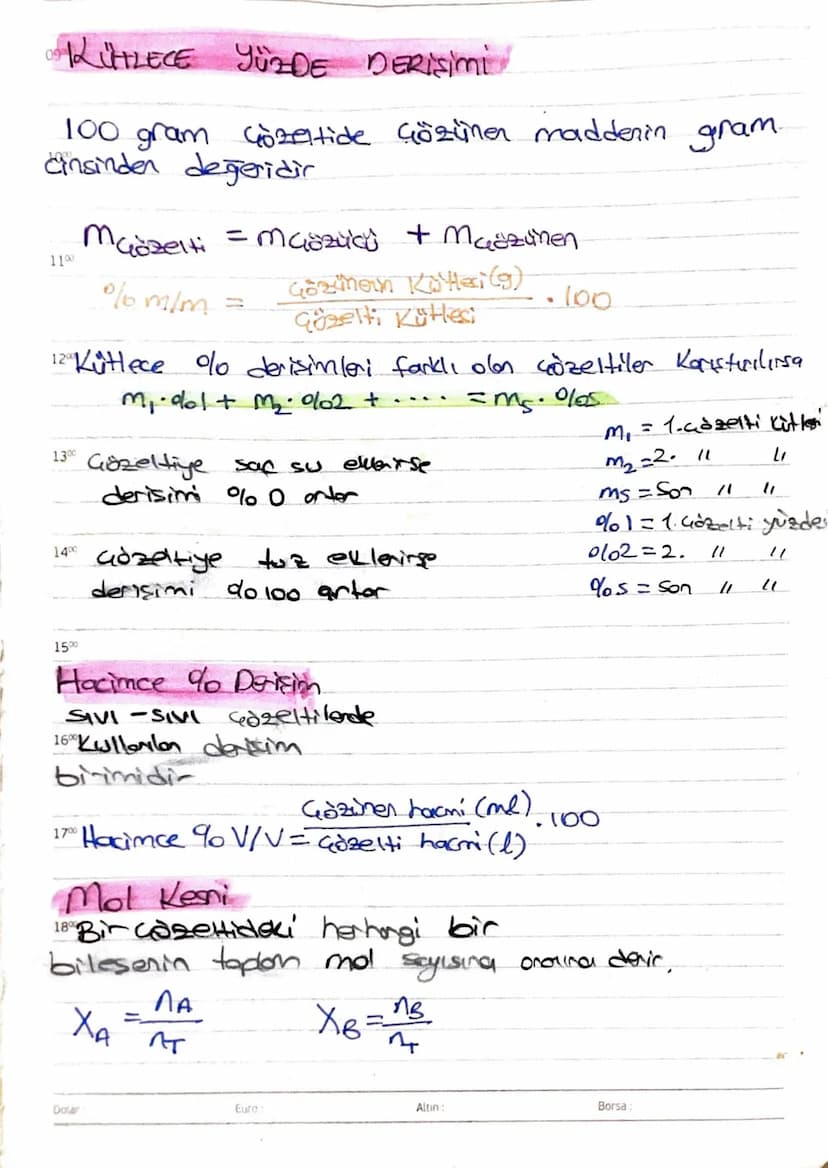 09
KÜTLECE YÜZDE DERİŞİMİ
100 gram çözeltide çözünen maddenin gram
cinsinden değeridir
mçözelti = mçözücü + mçözünen
11⁰⁰
% m/m = çözünenin kütlesi (g) / çözelti kütlesi . 100
12⁰⁰ Kütlece % derişimleri farklı olan çözeltiler karıştırılırsa
m₁.%1 + m₂.%2 + .... = ms.%s
m₁ = 1.çözelti kütlesi
m₂ = 2. " "
ms = Son " "
%1 = 1.çözelti yüzde
%2 = 2. " "
%s = son " "
13⁰⁰ Çözeltiye saf su eklenirse
derişimi % 0 artar
14⁰⁰ Çözeltiye tuz eklenirse
derişimi %100 artar
15⁰⁰
Hacimce % Derişim
sıvı - sıvı çözeltilerde
16⁰⁰ Kullanılan derişim
birimidir
17⁰⁰ Hacimce % V/V = Çözünen hacmi (ml) / çözelti hacmi (l) . 100
Mol Kesri
18⁰⁰ Bir çözeltideki herhangi bir
bileşenin toplam mol sayısına oranına denir.
X_A = n_A / n_T    X_B = n_B / n_T
Dolar : Euro : Altın : Borsa :